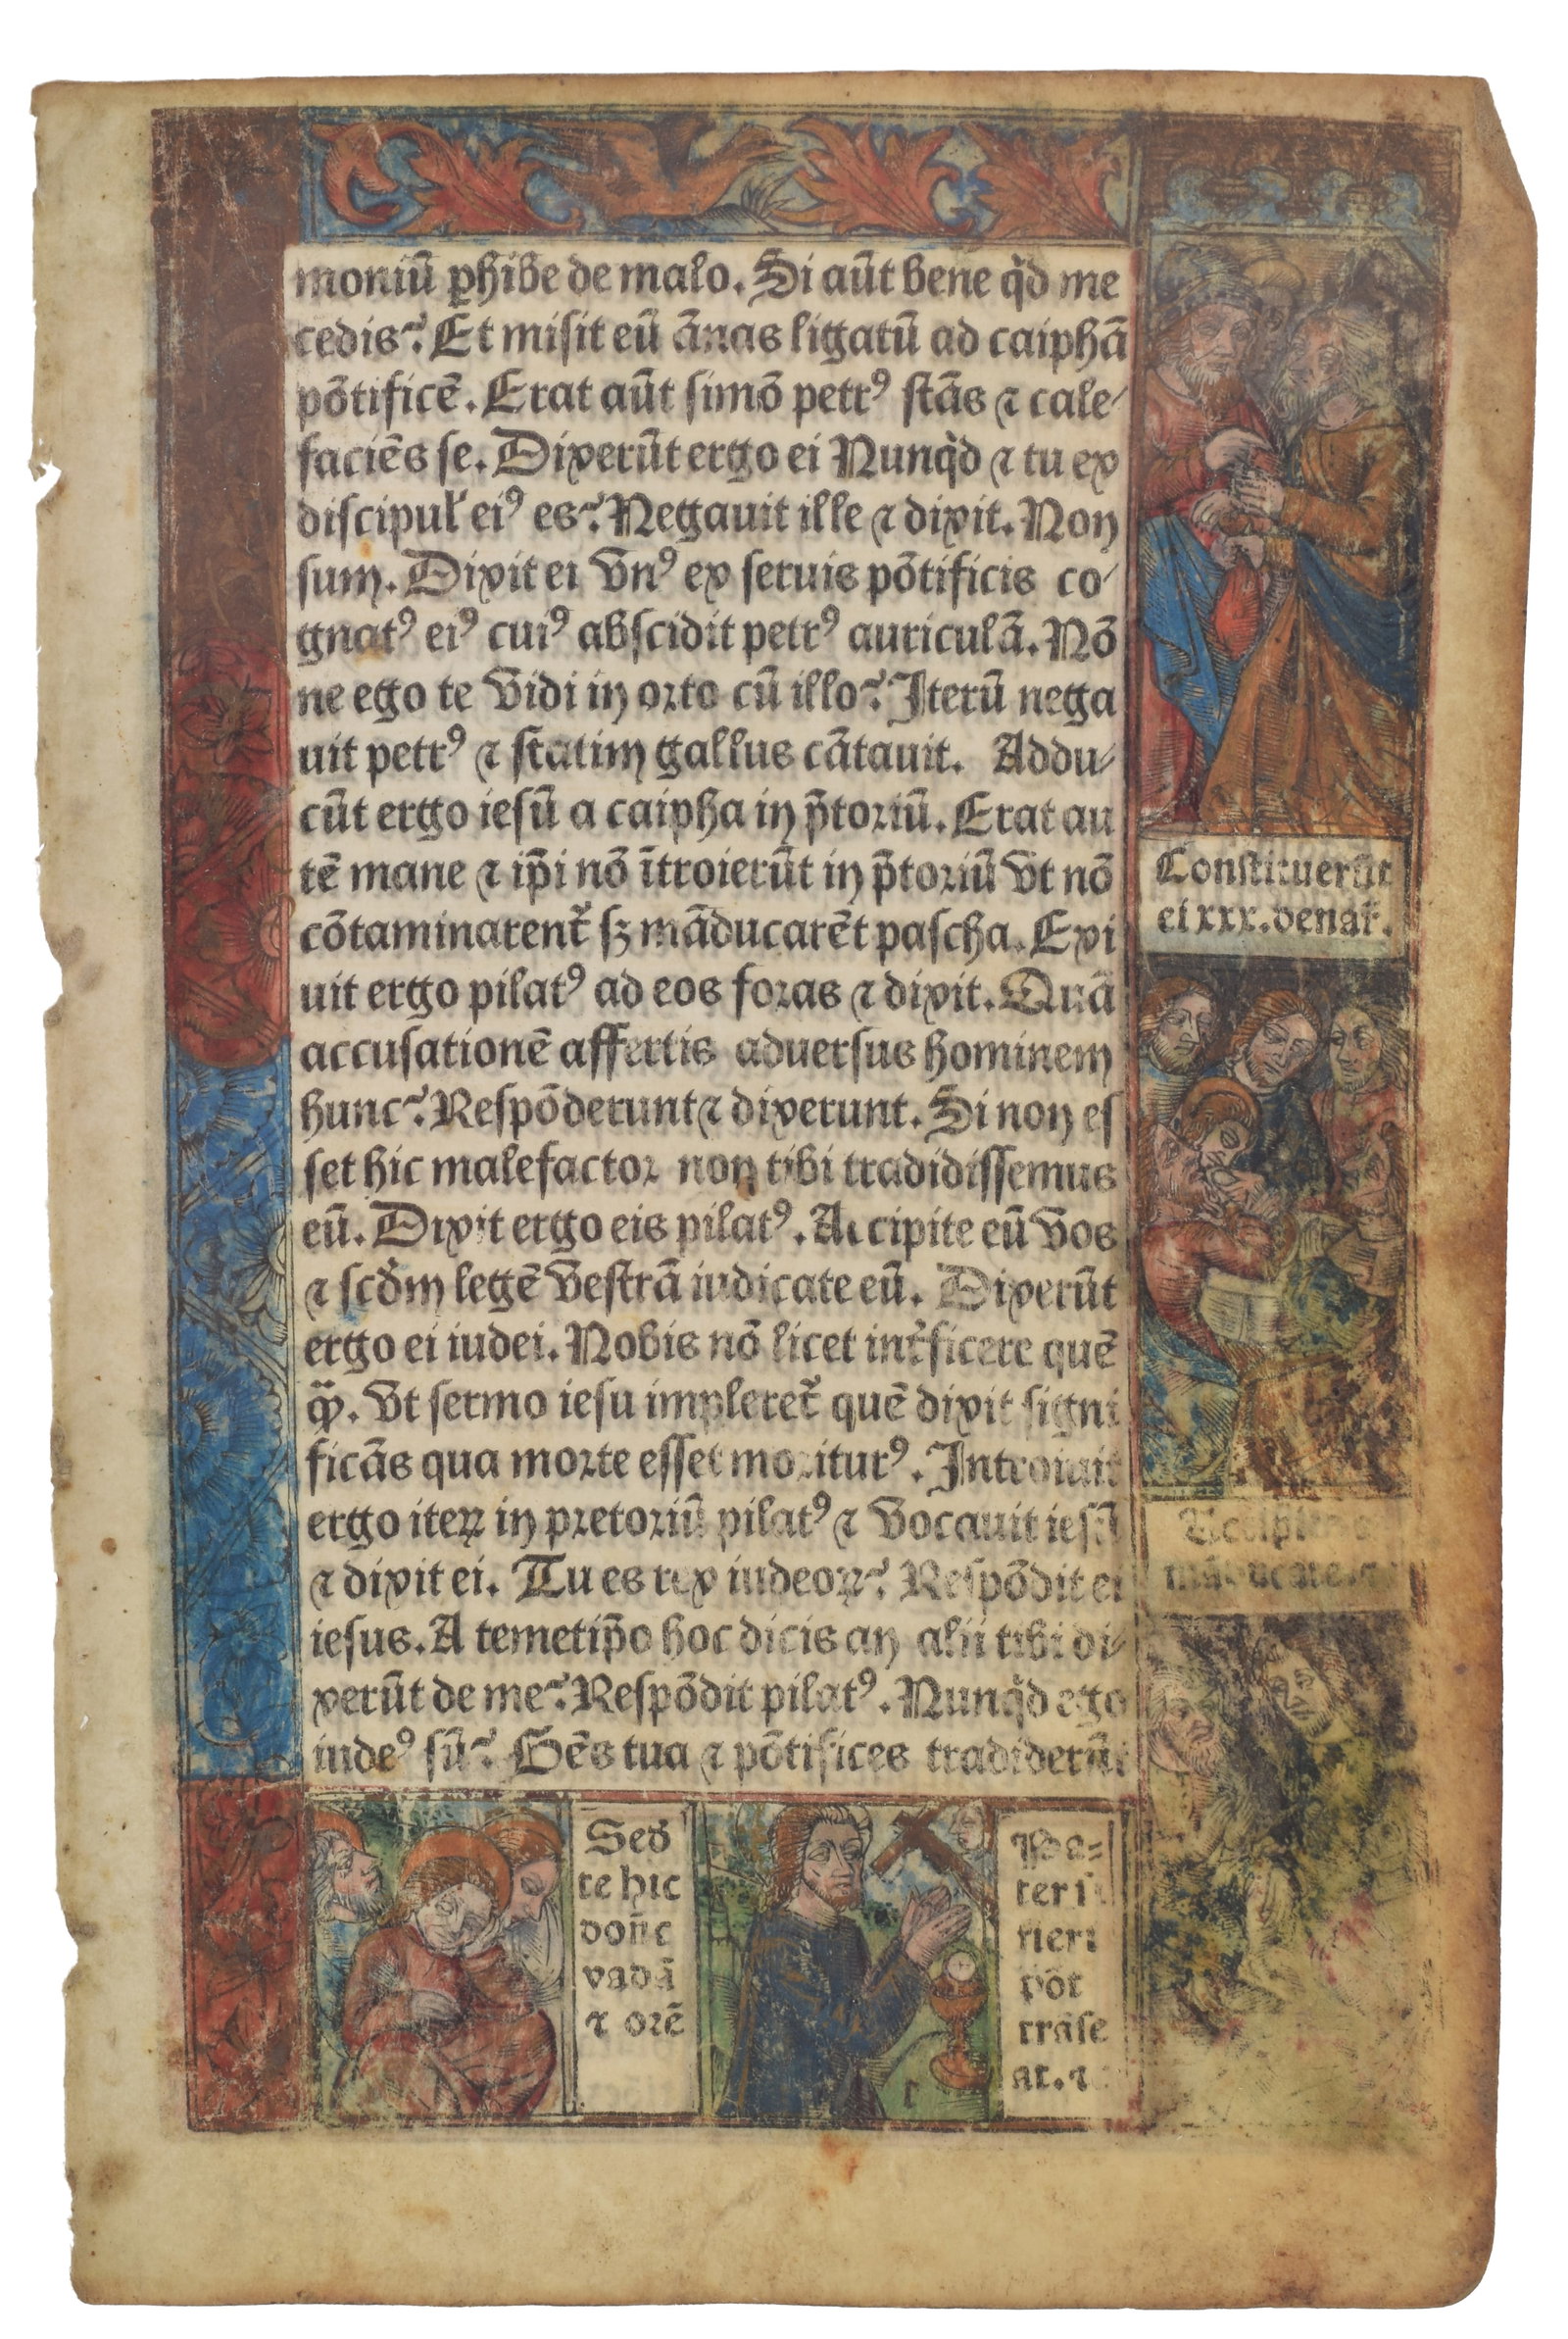 moniū ꝑhibe de malo. Si aūt bene qͥd me
cedis? Et misit eū ānas ligatū ad caiphā
pōtificē. Erat aūt simō petrꝰ stās ⁊ cale⸗
faciēs se. Dixerūt ergo ei Nunqͥd ⁊ tu ex
discipul' eiꝰ es? Negauit ille ⁊ dixit. Non
sum. Dixit ei vnꝰ ex seruis pōtificis co⸗
gnatꝰ eiꝰ cuiꝰ abscidit petrꝰ auriculā. Nō
ne ego te vidi in orto cū illo? Iterū nega
uit petrꝰ ⁊ statim gallus cātauit. Addu⸗
cūt ergo iesū a caipha in p̄toriū. Erat au
tē mane ⁊ ip̄i nō ītroierūt in p̄toriū vt nō
cōtaminarent᷑ sꝫ māducarēt pascha. Exi
uit ergo pilatꝰ ad eos foras ⁊ dixit. Quā
accusationē affertis aduersus hominem
hunc? Respōderunt ⁊ dixerunt. Si non es
set hic malefactor non tibi tradidissemus
eū. Dixit ergo eis pilatꝰ. Accipite eū vos
⁊ scd̄m legē vestrā iudicate eū. Dixerūt
ergo ei iudei. Nobis nō licet int᷑ficere quē
qͣ̄. Vt sermo iesu impleret᷑ quē dixit signi
ficās qua morte esset moriturꝰ. Introiuit
ergo iteꝝ in pretoriū pilatꝰ ⁊ vocauit iesū
⁊ dixit ei. Tu es rex iudeoꝝ? Respōdit ei
iesus. A temetip̄o hoc dicis an alii tibi di⸗
xerūt de me? Respōdit pilatꝰ. Nunqͥd ego
iudeꝰ sū? Gēs tua ⁊ pōtifices tradiderūt
Constituerūt
ei xxx. denar̄.
māducate.
Sed
te hic
don̄c
vadā
⁊ orē
Pa⸗
ter si
fieri
pōt
trāse
at. ⁊